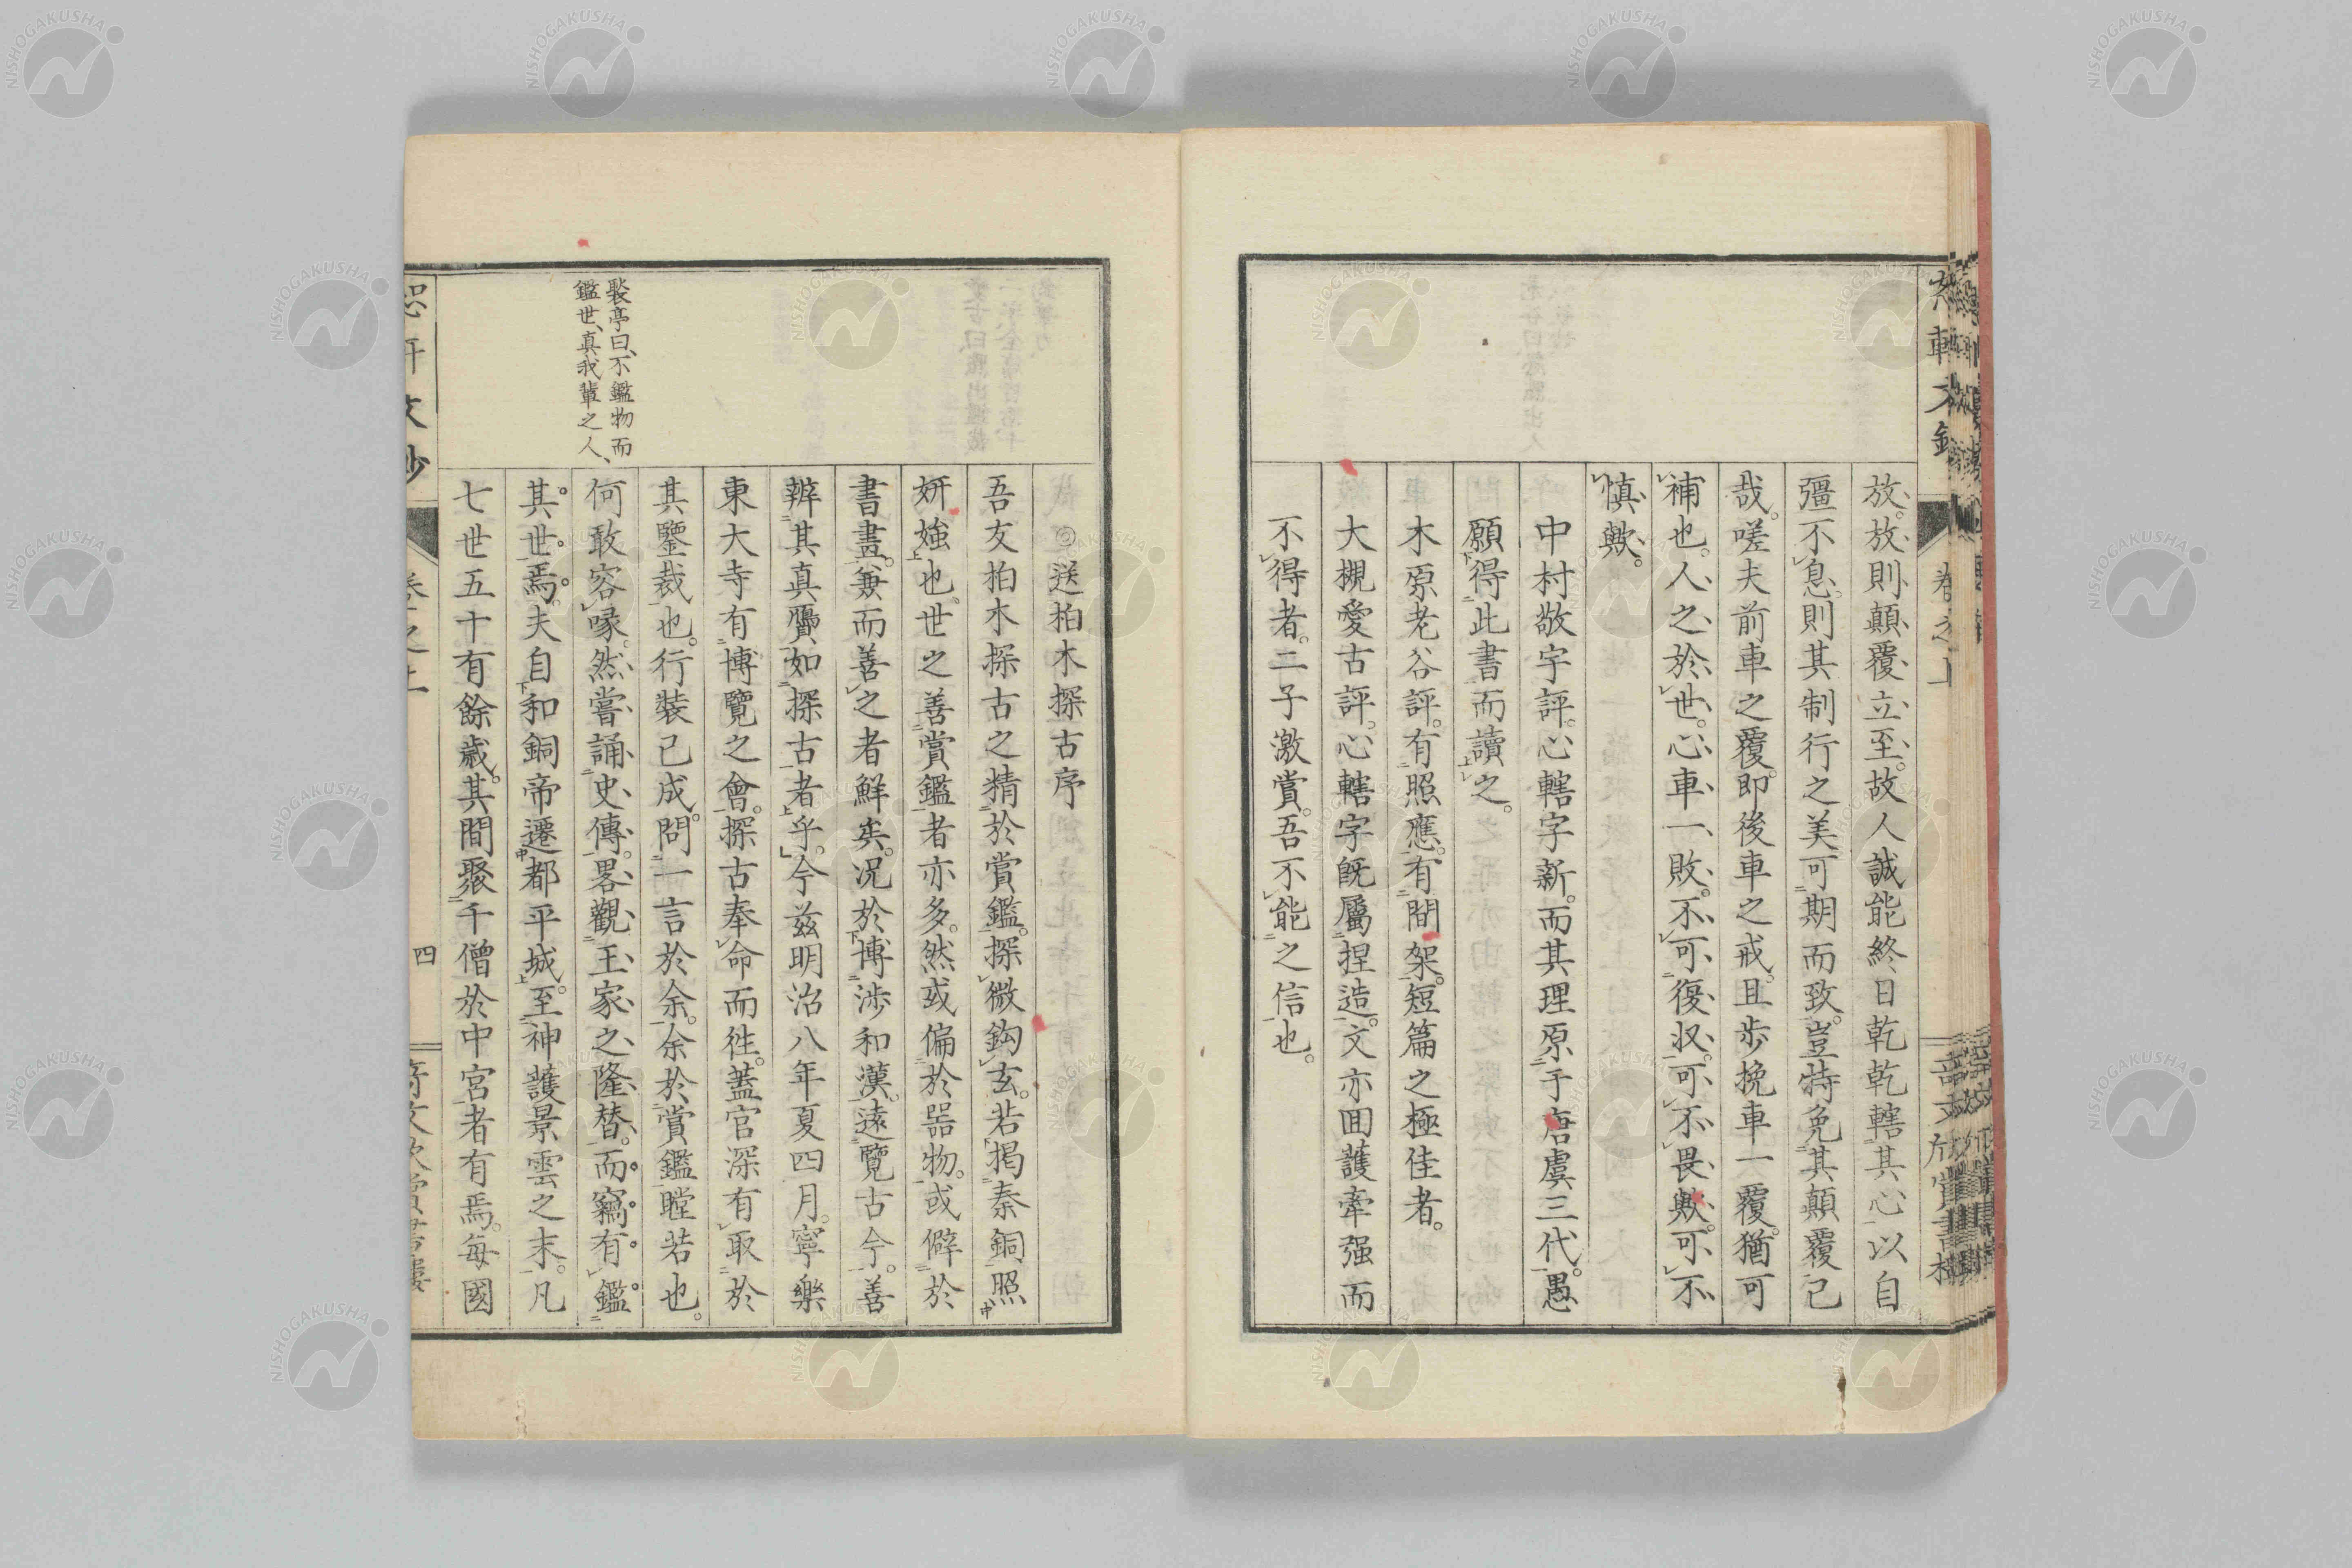 放放則顛覆立至。故人誠能終日乾乾轄其心以自
彊不息。則其制行之美可期而致。豈特免其顛覆已
哉。嗟夫前車之覆。即後車之戒。且步挽車一覆。猶可
補也。人之於世。心車一敗。不可復収。可不畏歟。可不
慎歟。
中村敬宇評。心轄字新。而其理原于唐虞三代。愚
願得此書而讀之。
木原老谷評。有照應。有間架。短篇之極佳者。
大槻愛古評。心轄字既屬捏造。文亦囬護牽强而
不得者。二子激賞。吾不能之信也。
◎送柏木探古序
吾友柏木探古之精於賞鑑。探微鈎玄。若揭秦銅照
妍媸也。世之善賞鑑者亦多。然或偏於器物。或僻於
書畫。兼而善之者鮮矣。况於博涉和漢。遠覽古今。善
辨其真贋如探古者乎。今茲明治八年夏四月。寧樂
東大寺有博覽之會。探古奉命而徃。蓋官深有取於
其鑒裁也。行裝已成。問一言於余。余於賞鑑瞠若也。
何敢容喙。然嘗誦史傳。畧觀王家之隆替。而竊有鑑
其世焉。夫自和銅帝遷都平城。至神護景雲之末。凡
七世五十有餘歲。其間聚千僧於中宮者有焉。每國
聚亭曰、不鑑物而
鑑世、真我輩之人、
四